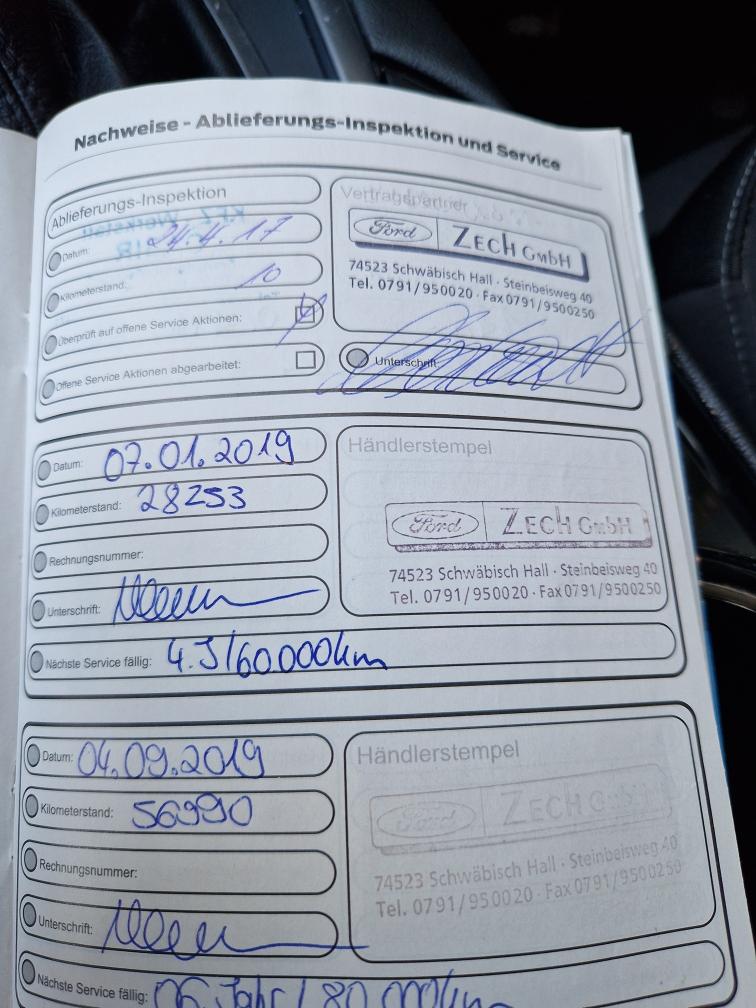 Nachweise - Ablieferungs-Inspektion und Service
Ablieferungs-Inspektion
Datum: 24.4.17
Kilometerstand: 10
Überprüft auf offene Service Aktionen:
Offene Service Aktionen abgearbeitet:
Vertragspartner
Ford ZECH GmbH
74523 Schwäbisch Hall · Steinbeisweg 40
Tel. 0791/950020 · Fax 0791/9500250
Unterschrift:
Datum: 07.01.2019
Kilometerstand: 28253
Rechnungsnummer:
Unterschrift:
Händlerstempel
Ford ZECH GmbH
74523 Schwäbisch Hall · Steinbeisweg 40
Tel. 0791/950020 · Fax 0791/9500250
Nächste Service fällig: 4.J/60.000km
Datum: 04.09.2019
Kilometerstand: 56990
Rechnungsnummer:
Unterschrift:
Händlerstempel
Ford ZECH GmbH
74523 Schwäbisch Hall · Steinbeisweg 40
Tel. 0791/950020 · Fax 0791/9500250
Nächste Service fällig: 06. Jahr / 80.000km